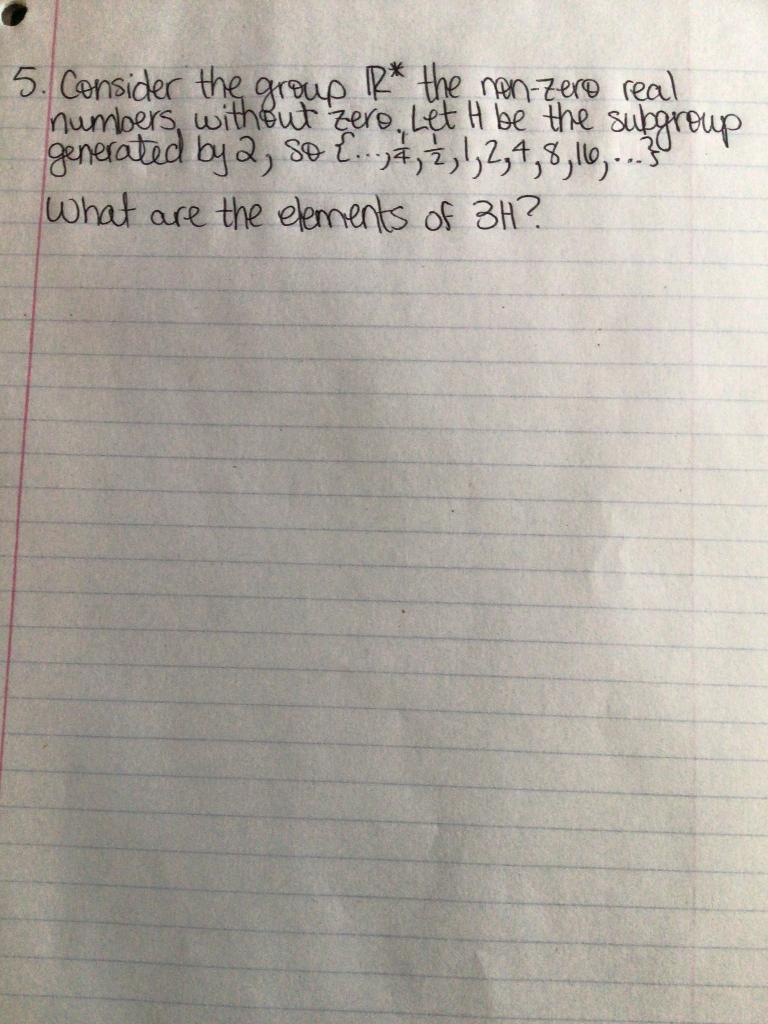 5. Consider the group ℝ* the non-zero real
numbers, without zero. Let H be the subgroup
generated by 2, so {..., 1/4, 1/2, 1, 2, 4, 8, 16, ...}
What are the elements of 3H?